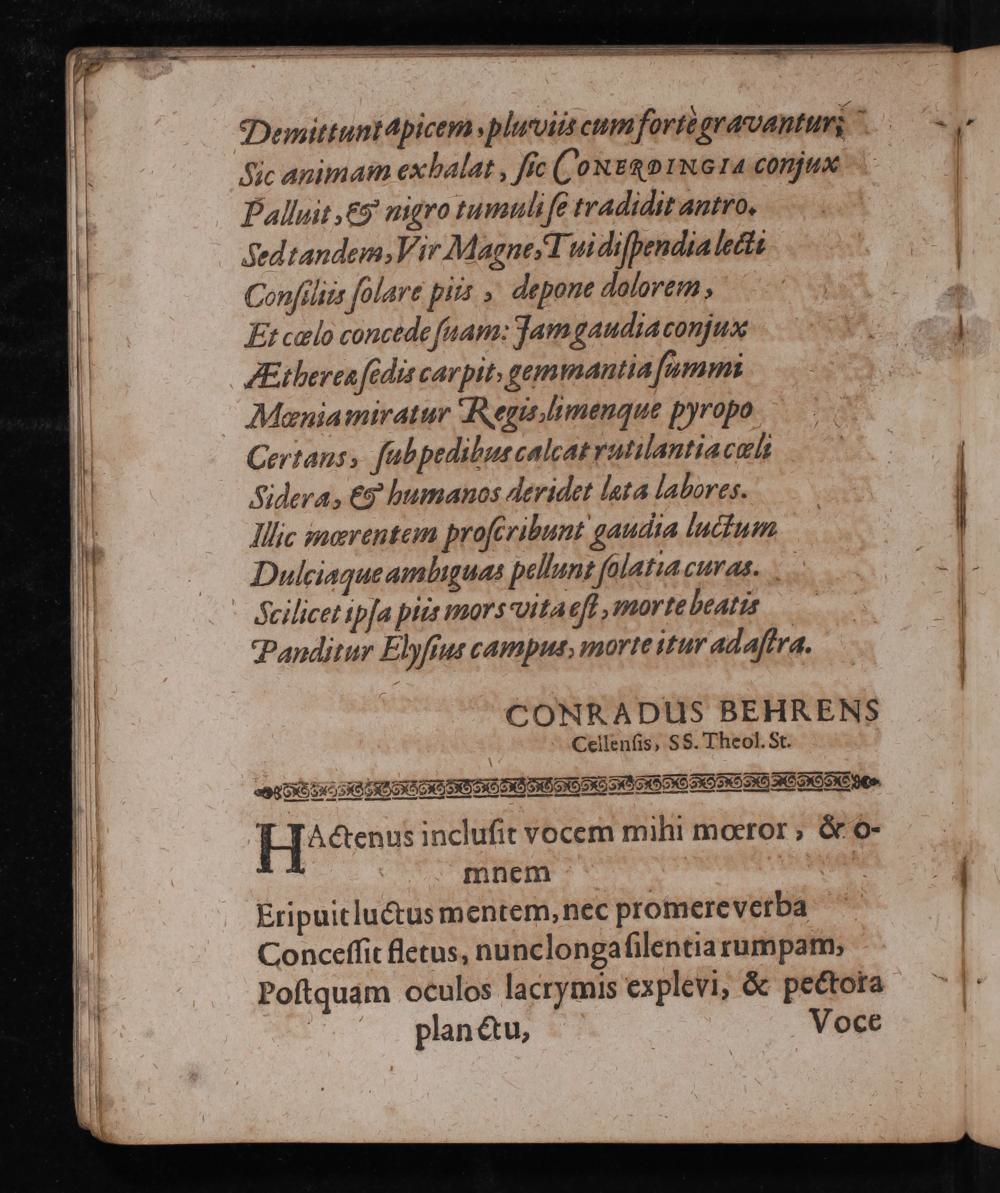 Demittunt apicem, pluviis cum fortè gravantur;
Sic animam exhalat, ſic CONERDINGIA conjux
Palluit, & nigro tumuli ſe tradidit antro.
Sed tandem, Vir Magne, Tui diſpendia lecti
Conſiliis ſolare piis, depone dolorem,
Et cœlo concede ſuam: Jam gaudia conjux
Æthereæ ſedis carpit, gemmantia ſummi
Mœnia miratur Regis, limenque pyropo
Certans, ſub pedibus calcat rutilantia cœli
Sidera, & humanos deridet læta labores.
Illic mœrentem proſcribunt gaudia luctum
Dulciaque ambiguas pellunt ſolatia curas.
Scilicet ipſa piis mors vita eſt, morte beatis
Panditur Elyſius campus, morte itur ad aſtra.
CONRADUS BEHRENS
Cellenſis, SS. Theol. St.
HActenus incluſit vocem mihi mœror, & o-
mnem
Eripuit luctus mentem, nec promere verba
Conceſſit fletus, nunc longa ſilentia rumpam,
Poſtquam oculos lacrymis explevi, & pectora
planctu,
Voce